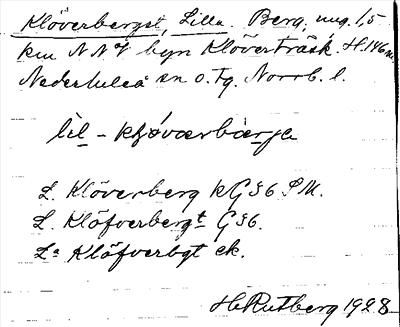 Klöverberget, Lilla. Berg, ung. 1,5
km NNV byn Klöverträsk. H. 146 m.
Nederluleå sn o. tg. Norrb. l.
lil - kḷöværbærje
L. Klöverberg kG 36 SM.
L. Klöfverbergt G 36.
La Klöfverbgt ek.
H. Rutberg 1928